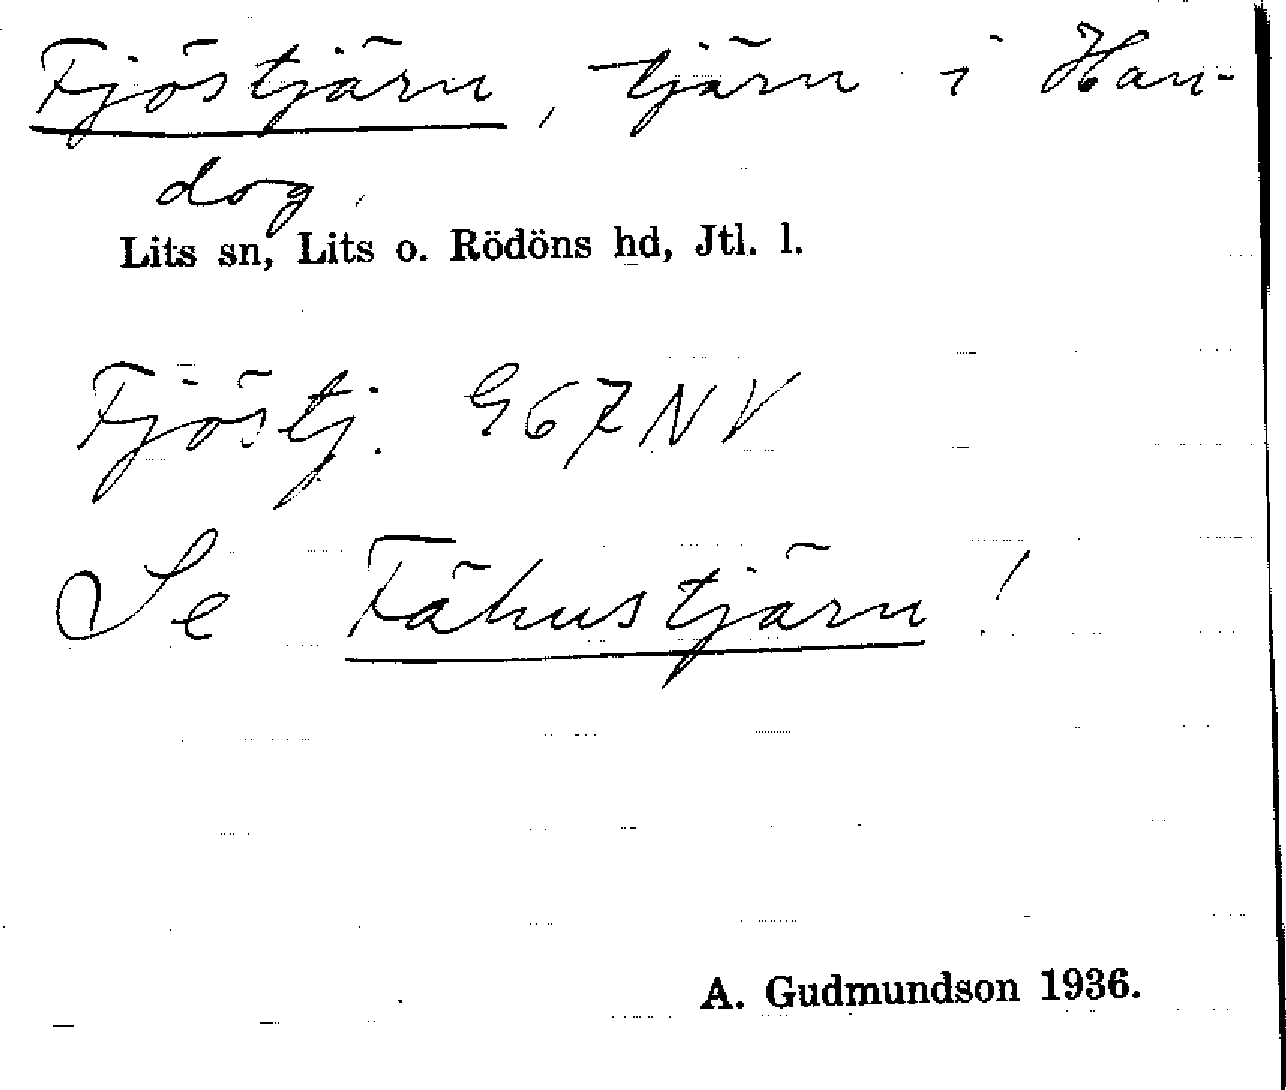 Fjöstjärn, tjärn i Han-
dog.
Lits sn, Lits o. Rödöns hd, Jtl. l.
Fjöstj. G67NV
Se Fähustjärn!
A. Gudmundson 1936.